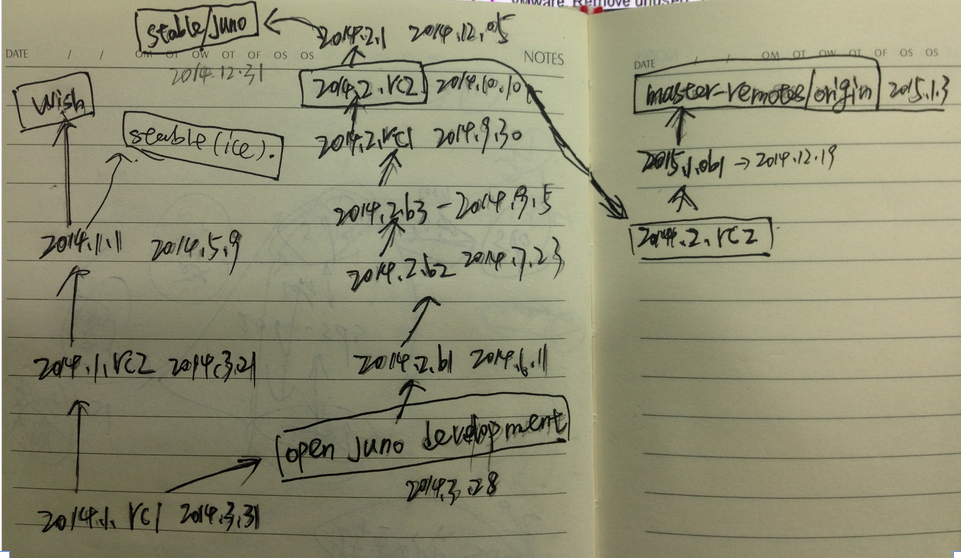 VMware. Remove unused
stable/juno
2014.2.1 2014.12.05
DATE / / OM OT OW OT OF OS OS NOTES
2014.12.31
2014.2.rc2 2014.10.10
wish
stable (ice).
2014.2.rc1 2014.9.30
2014.2.b3 - 2014.9.5
2014.1.1 2014.5.9
2014.2.b2 2014.7.23
2014.1.rc2 2014.3.21
2014.2.b1 2014.6.11
open juno development
2014.3.28
2014.1.rc1 2014.3.31
DATE / / OM OT OW OT OF OS OS
master-remotes/origin 2015.1.3
2015.1.0b1 → 2014.12.19
2014.2.rc2